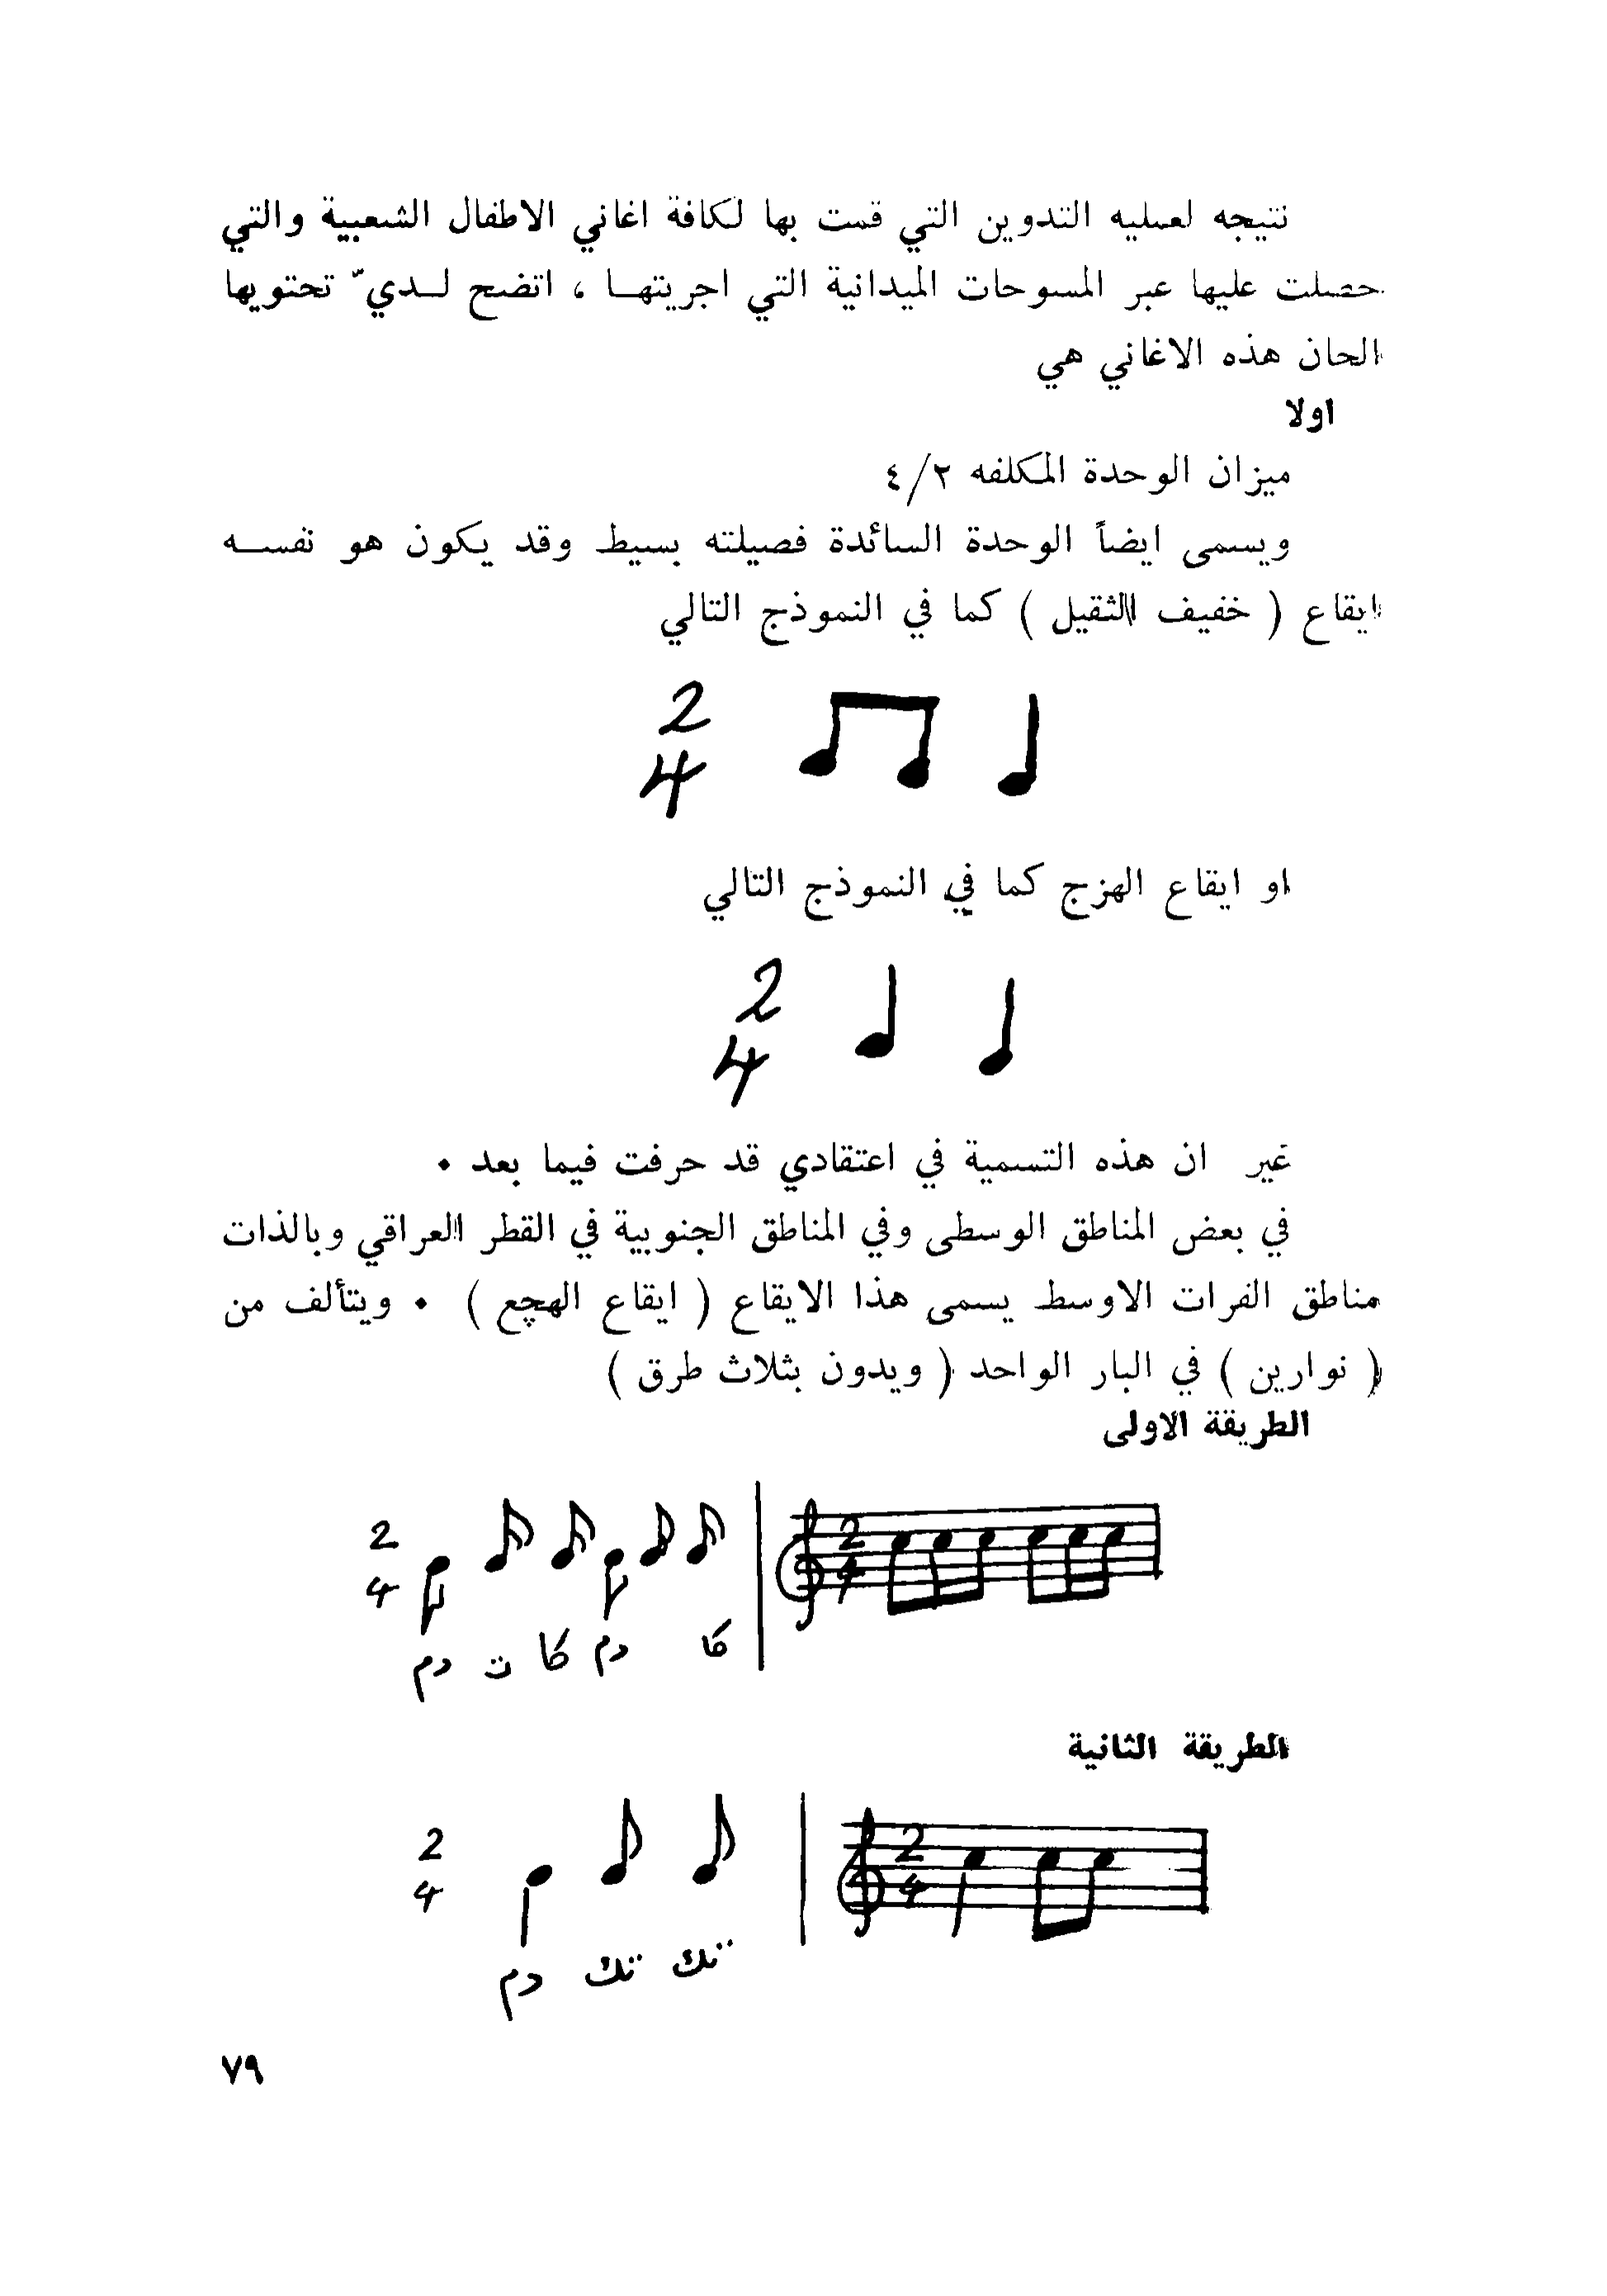 نتيجه لعمليه التدوين التي قمت بها لكافة اغاني الاطفال الشعبية والتي
حصلت عليها عبر المسوحات الميدانية التي اجريتهـا ، اتضح لـديّ تحتويها
الحان هذه الاغاني هي
اولا
ميزان الوحدة المكلفه ٤/٢
ويسمى ايضاً الوحدة السائدة فصيلته بسيط وقد يكون هو نفســه
ايقاع ( خفيف الثقيل ) كما في النموذج التالي
2
4
او ايقاع الهزج كما في النموذج التالي
2
4
غير ان هذه التسمية في اعتقادي قد حرفت فيما بعد .
في بعض المناطق الوسطى وفي المناطق الجنوبية في القطر العراقي وبالذات
مناطق الفرات الاوسط يسمى هذا الايقاع ( ايقاع الهچع ) . ويتألف من
( نوارين ) في البار الواحد ( ويدون بثلاث طرق )
الطريقة الاولى
2
4
2
4
دم ت كا دم كا
الطريقة الثانية
2
4
2
4
دم تك تك
٧٩